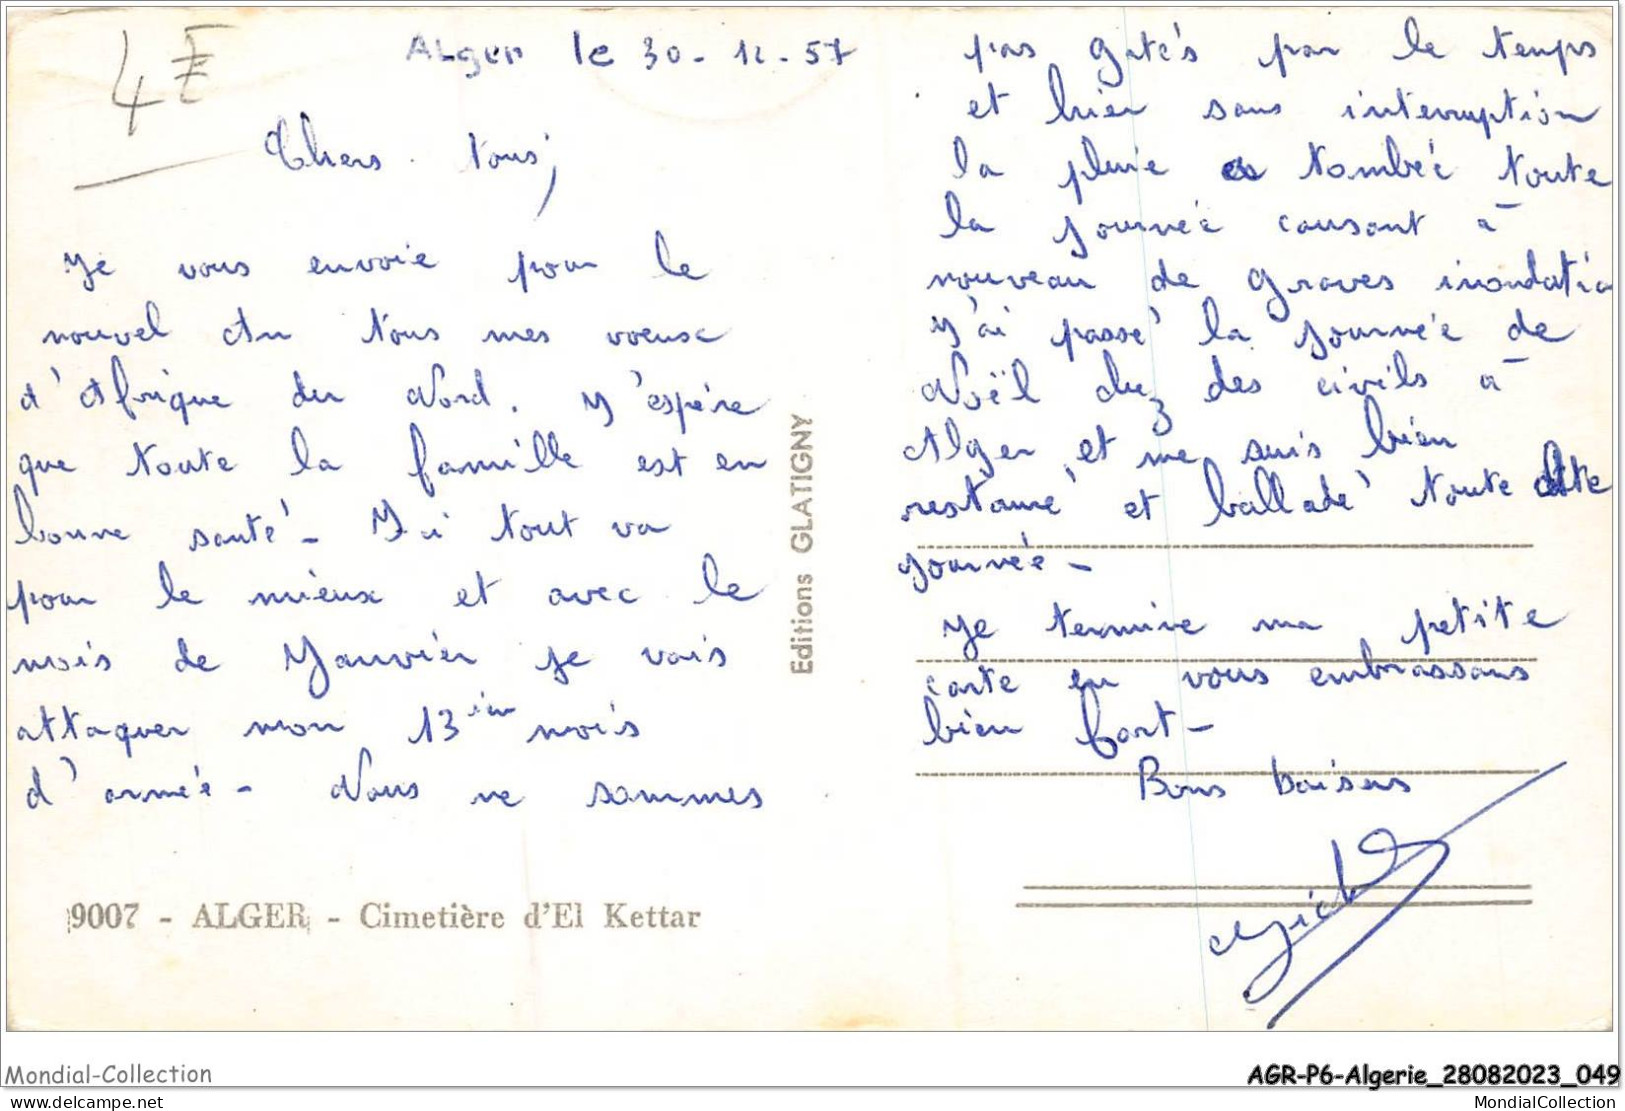 4F
Alger le 30-12-57
Chers Tous;
Je vous envoie pour le
nouvel An Tous mes voeux
d'Afrique du Nord. J'espère
que toute la famille est en
bonne santé - Ici tout va
pour le mieux et avec le
mois de Janvier je vais
attaquer mon 13ièm mois
d'armée - Nous ne sommes
9007 - ALGER - Cimetière d'El Kettar
Editions GLATIGNY
pas gatés par le temps
et hier sans interruption
la pluie es tombée toute
la journée causant à
nouveau de graves inondatio
J'ai passé la journée de
Noël chez des civils à
Alger et me suis bien
restauré et balladé toute cette
journée -
Je termine ma petite
carte en vous embrassans
bien fort -
Bons baisers
Mondial-Collection
AGR-P6-Algerie_28082023_049
delcampe.net
MondialCollection